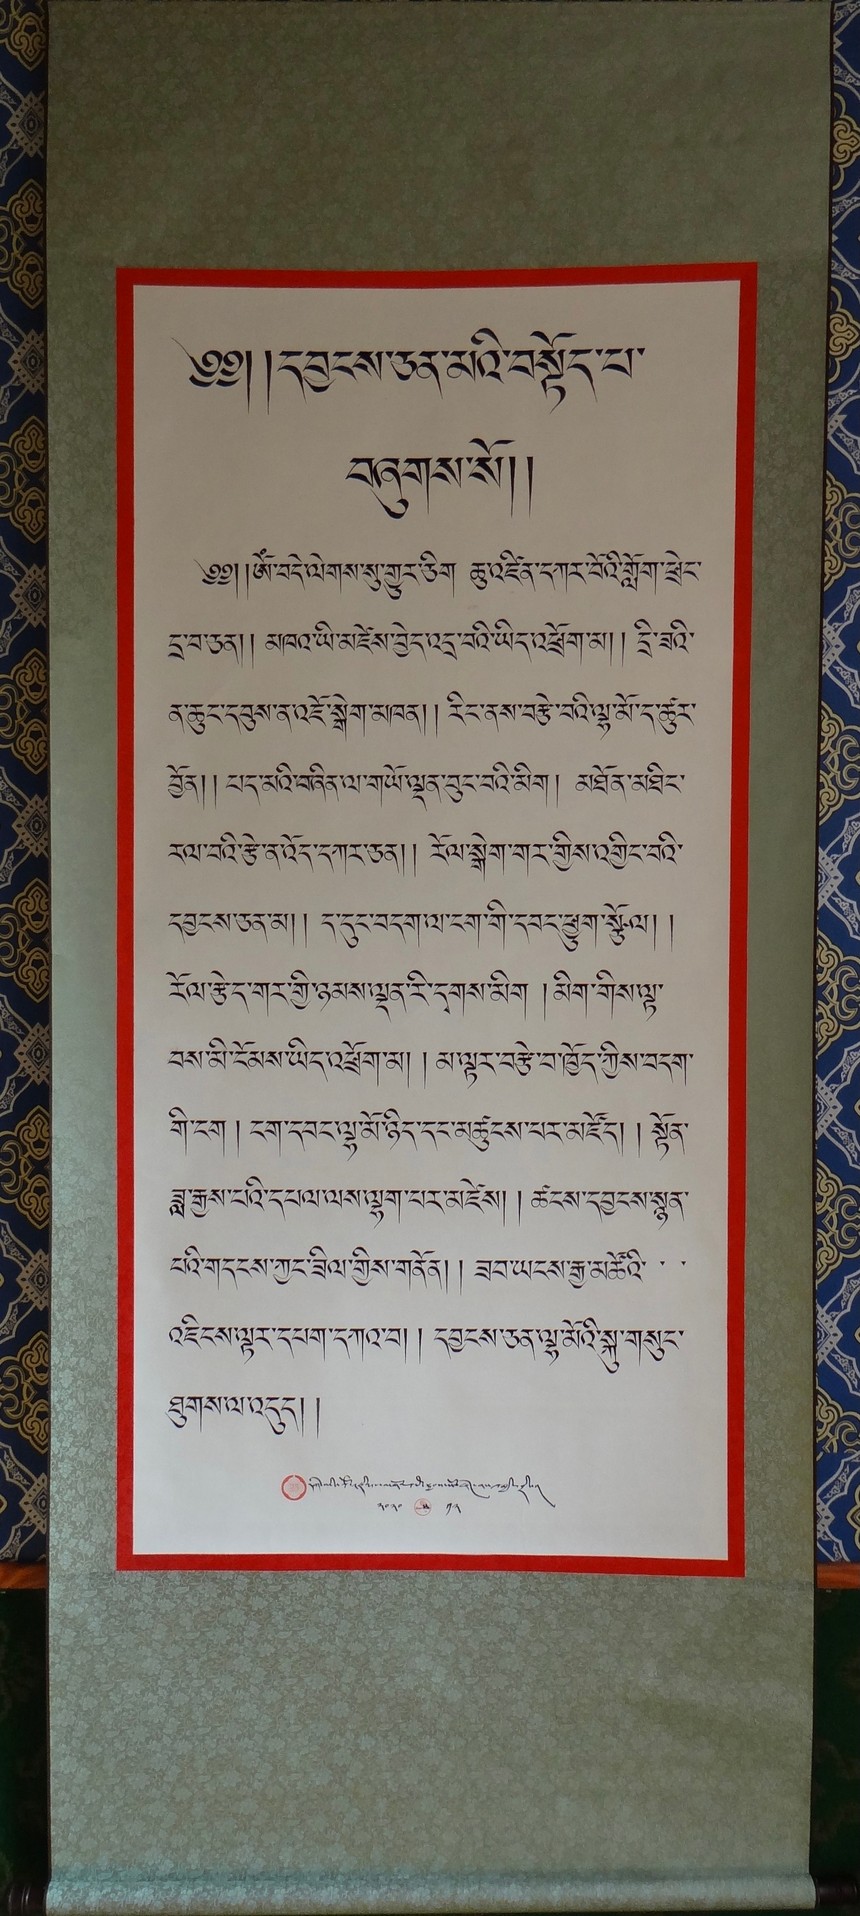 ༄༅། །དབྱངས་ཅན་མའི་བསྟོད་པ་
བཞུགས་སོ། །
༄༅། །ཨོཾ་བདེ་ལེགས་སུ་གྱུར་ཅིག ཆུ་འཛིན་དཀར་པོའི་གློག་ཕྲེང་
དྲ་བ་ཅན། ། མཁའ་ཡི་མཛེས་བྱེད་འདྲ་བའི་ཡིད་འཕྲོག་མ། ། དྲི་ཟའི་
ན་ཆུང་དབུས་ན་འཇོ་སྒེག་མཁན། ། རིང་ནས་བརྩེ་བའི་ལྷ་མོ་ད་ཚུར་
བྱོན། ། པད་མའི་བཞིན་ལ་གཡོ་ལྡན་བུང་བའི་མིག ། མཐོན་མཐིང་
རལ་བའི་རྩེ་ན་འོད་དཀར་ཅན། ། རོལ་སྒེག་གར་གྱིས་འགྱིང་བའི་
དབྱངས་ཅན་མ། ། ད་དུང་བདག་ལ་ངག་གི་དབང་ཕྱུག་སྩོལ། །
རོལ་རྩེད་གར་གྱི་ཉམས་ལྡན་རི་དྭགས་མིག །མིག་གིས་ལྟ་
བས་མི་ངོམས་ཡིད་འཕྲོག་མ། ། མ་ལྟར་བརྩེ་བ་ཁྱོད་ཀྱིས་བདག་
གི་ངག ། ངག་དབང་ལྷ་མོ་ཉིད་དང་མཚུངས་པར་མཛོད། ། སྟོན་
ཟླ་རྒྱས་པའི་དཔལ་ལས་ལྷག་པར་མཛེས། ། ཚངས་དབྱངས་སྙན་
པའི་གདངས་ཀྱང་ཟིལ་གྱིས་གནོན། ། ཟབ་ཡངས་རྒྱ་མཚོའི་ ་ ་
འཇིངས་ལྟར་དཔག་དཀའ་བ། ། དབྱངས་ཅན་ལྷ་མོའི་སྐུ་གསུང་
ཐུགས་ལ་འདུད། །